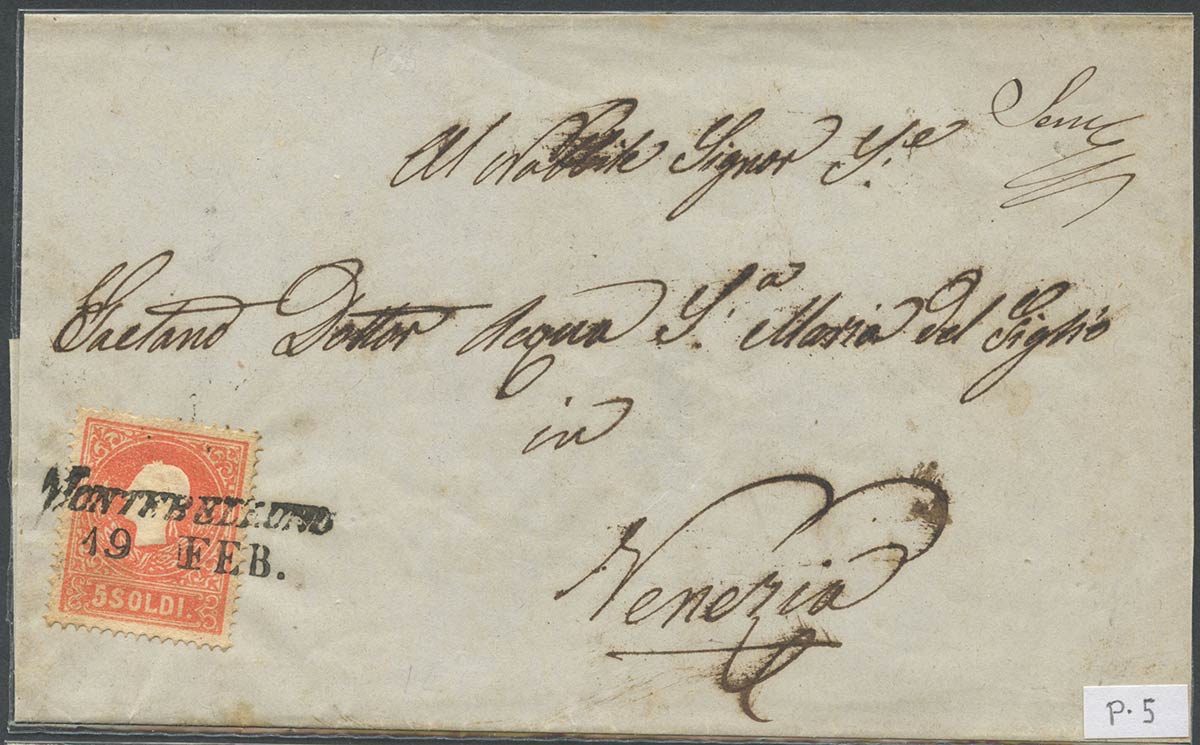 Al Nobile Signor S.e
Gaetano Dottor Acqua S.a Maria del Giglio
in
Venezia
MONTEBELLUNO
19 FEB.
5 SOLDI.
P. 5